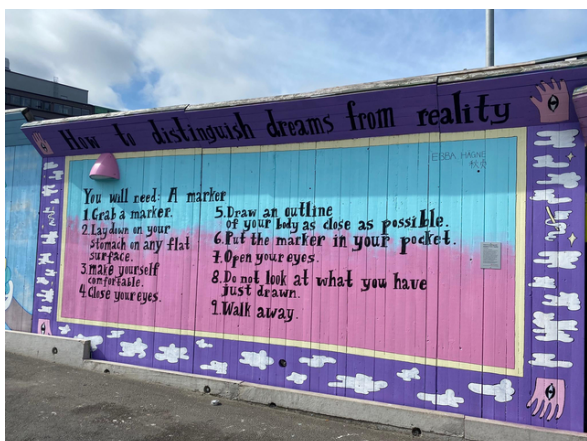 How to distinguish dreams from reality
EBBA MAGNE
You will need: A marker
1. Grab a marker.
2. Lay down on your
stomach on any flat
surface.
3. make yourself
comfortable.
4. Close your eyes.
5. Draw an outline
of your body as close as possible.
6. Put the marker in your pocket.
7. Open your eyes.
8. Do not look at what you have
just drawn.
9. Walk away.